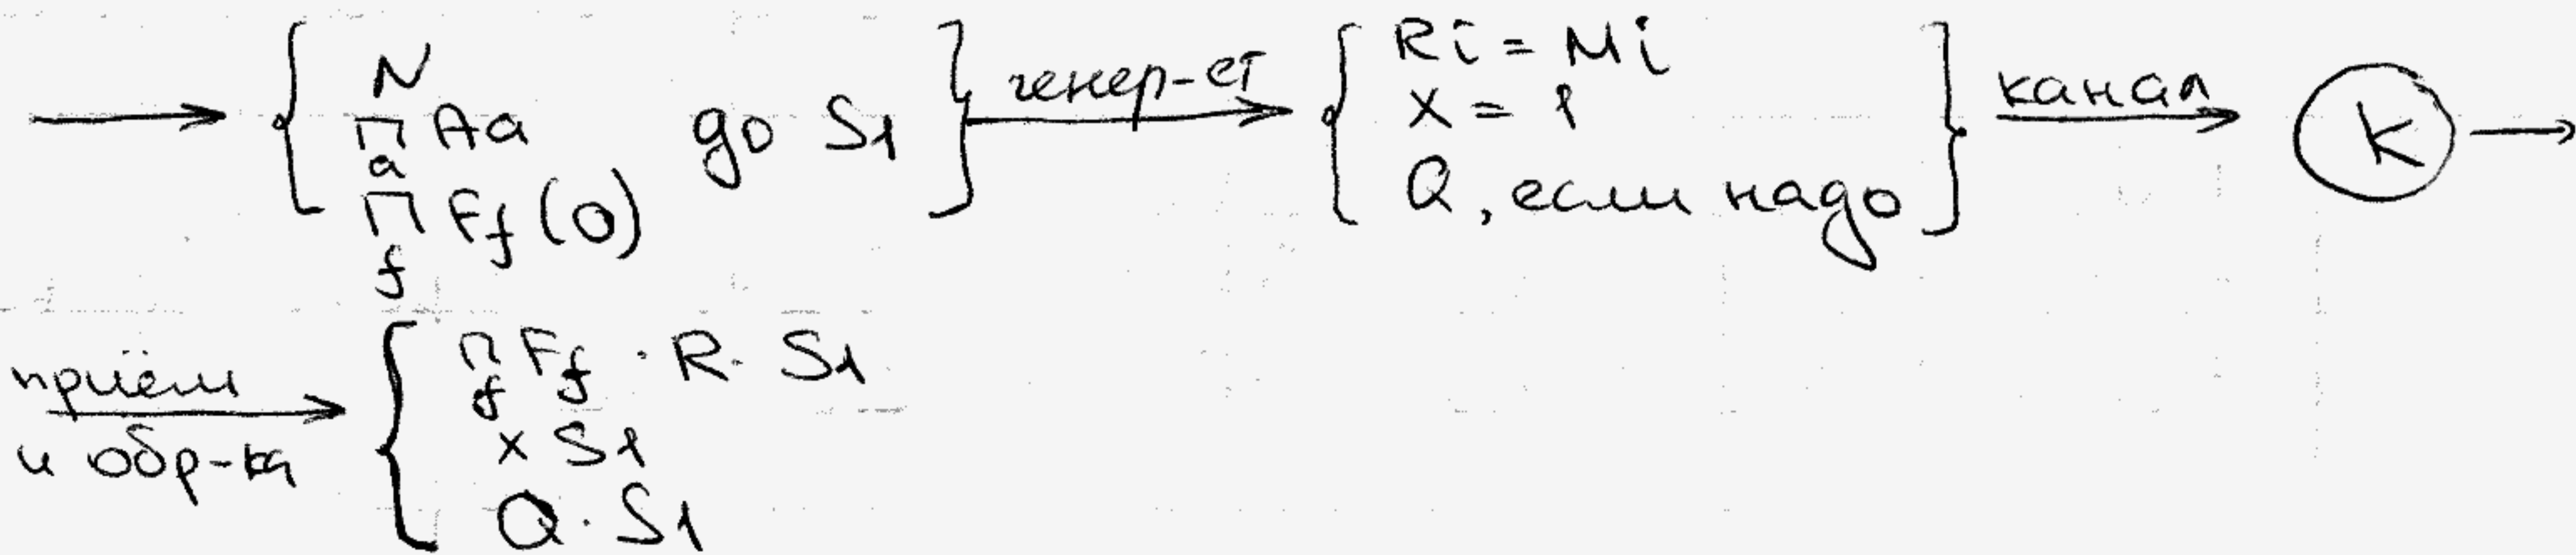 → { N П a Aa П f Ff (0) до S1 } генер-ет → { Ri = Mi X = 1 Q, если надо } канал → K →
приём и обр-ка → { П f Ff · R · S1
x S1
Q · S1